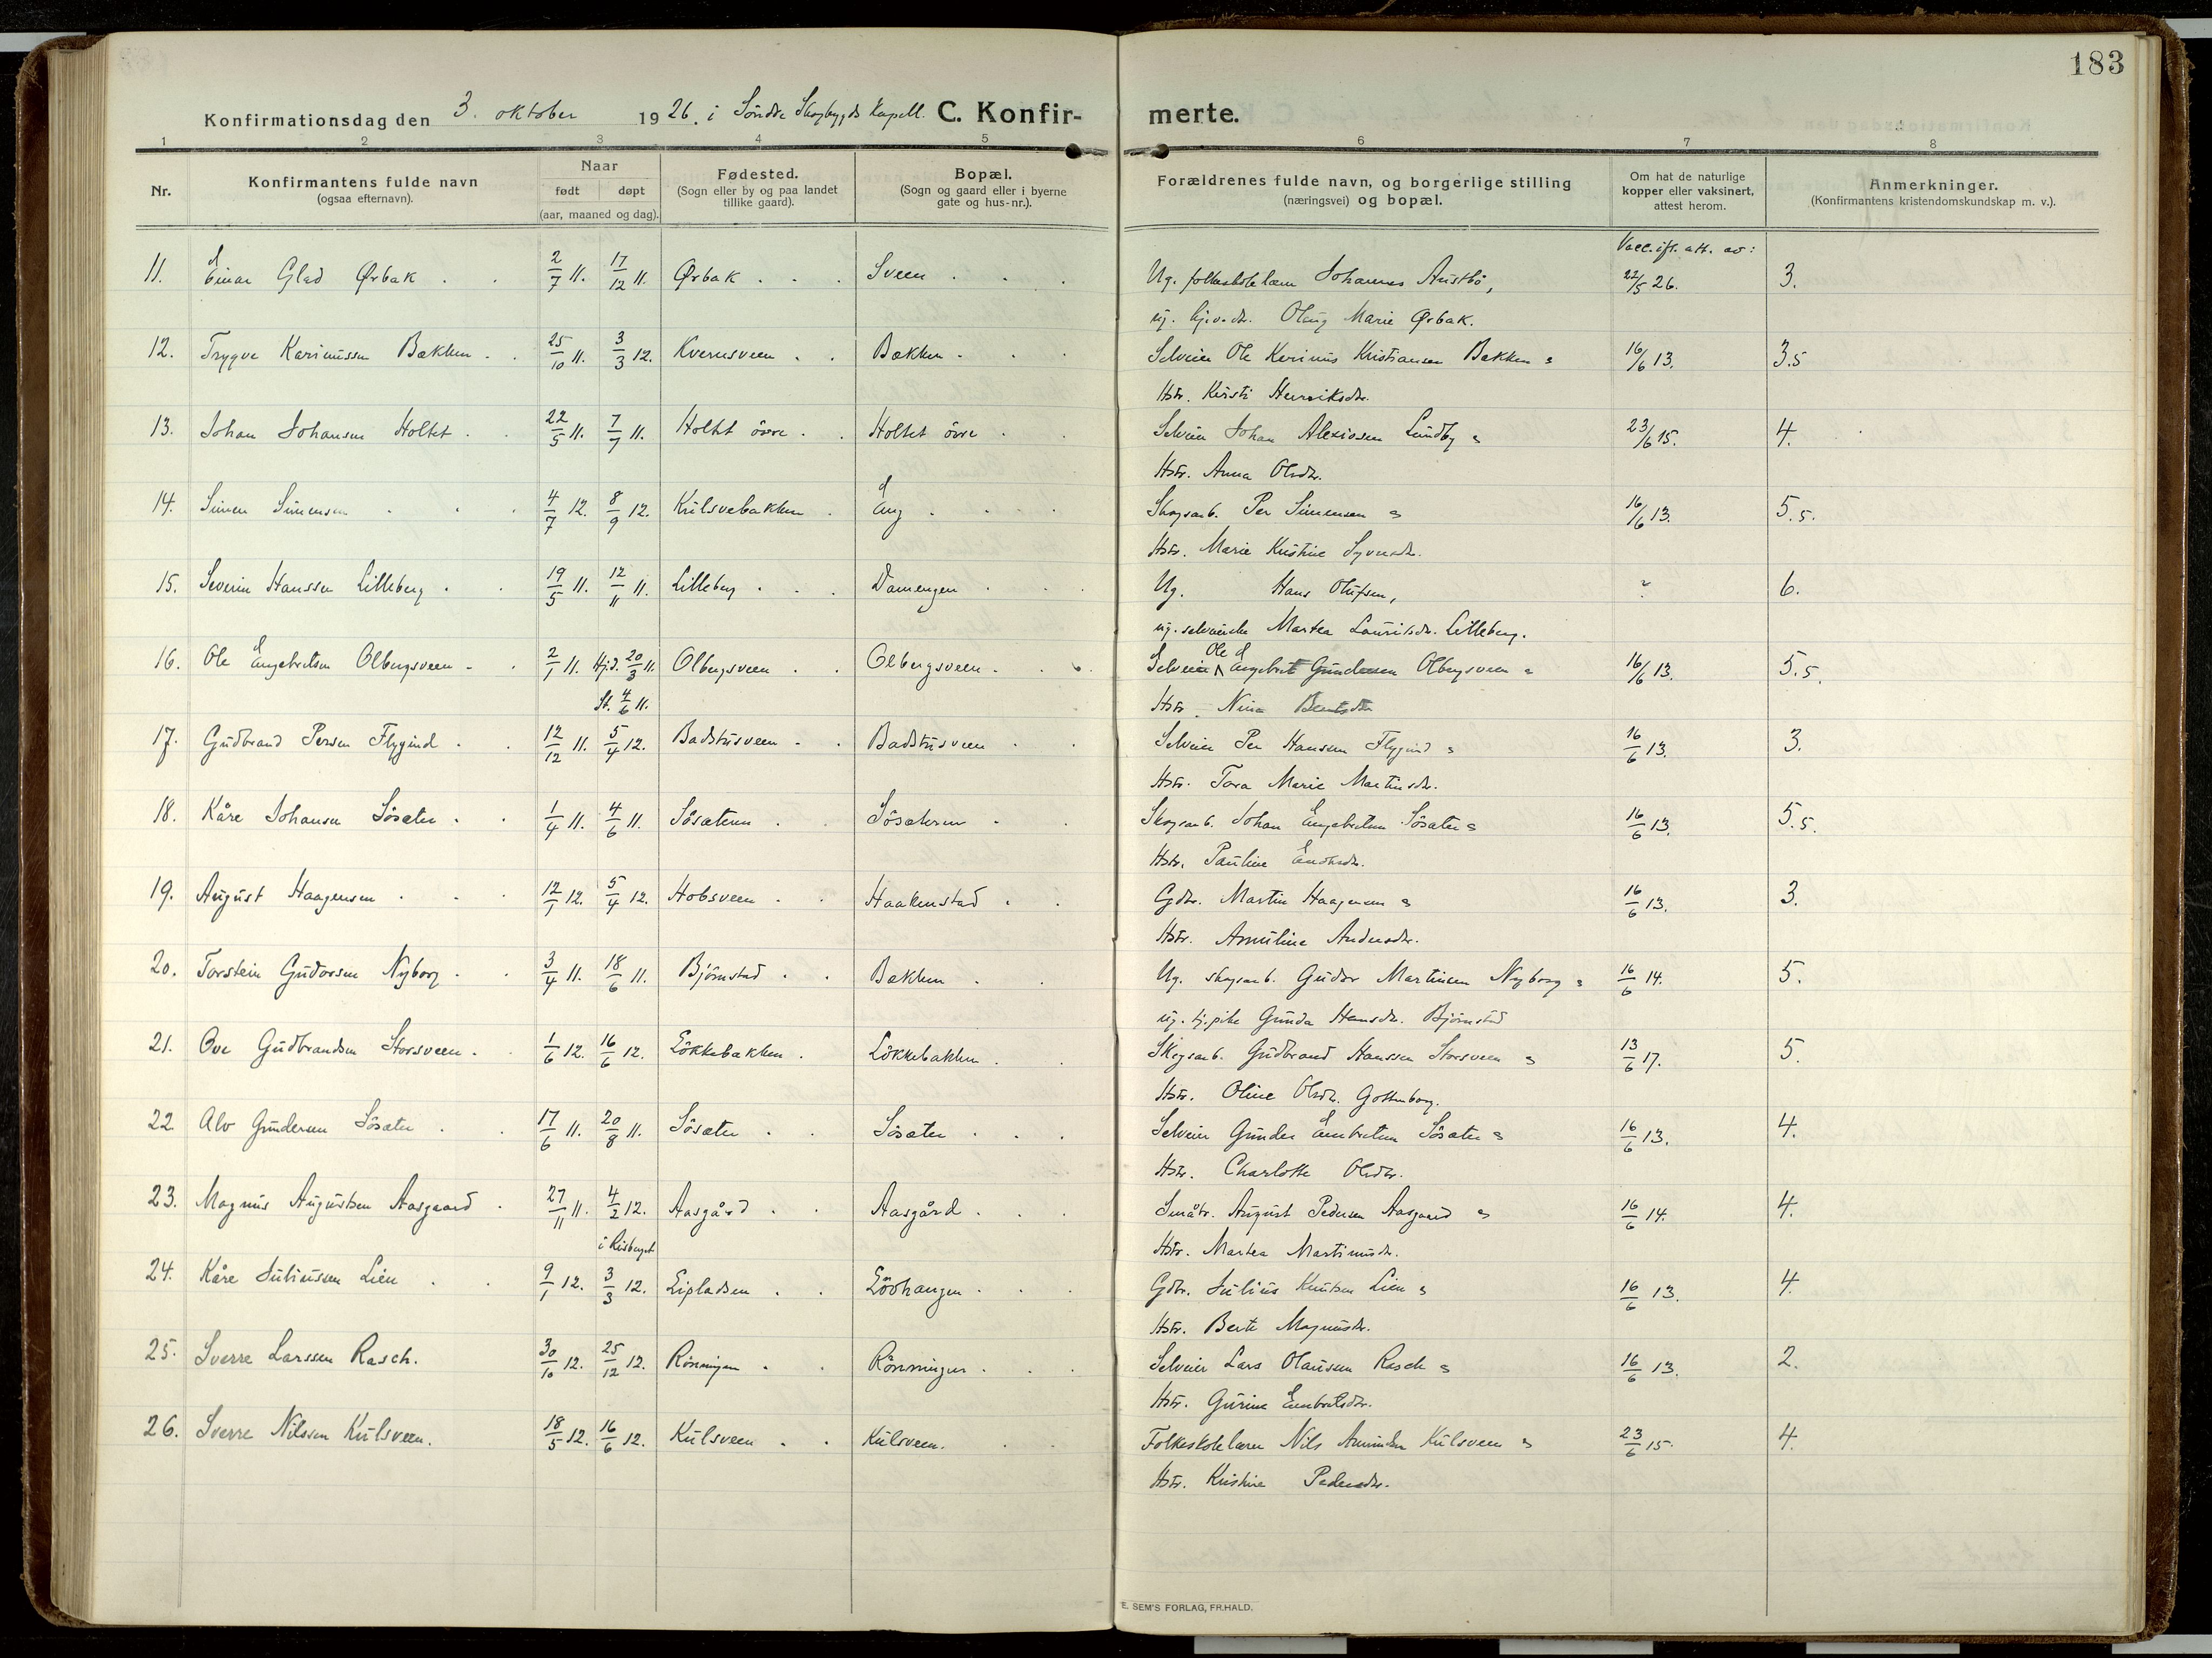 183
Konfirmationsdag den 3. oktober 1926. i Söndre Skogbygds Kapell. C. Konfirmerte.
1 2 3 4 5 6 7 8
Nr. Konfirmantens fulde navn (ogsaa efternavn). Naar født døpt (aar, maaned og dag). Fødested. (Sogn eller by og paa landet tillike gaard). Bopæl. (Sogn og gaard eller i byerne gate og hus-nr.). Forældrenes fulde navn, og borgerlige stilling (næringsvei) og bopæl. Om hat de naturlige kopper eller vaksinert, attest herom. Anmerkninger. (Konfirmantens kristendomskundskap m. v.).
Vacc. ifl. att. av:
11. Einar Glad Ørbak 2/7 11. 17/12 11. Ørbak Sveen Ug. folkeskolelærer Johannes Austbö, 22/5 26. 3.
ug. Olaug Marie Ørbak.
12. Trygve Karinussen Bakken 25/10 11. 3/3 12. Kvernsveen Bakken Selveier Ole Karinus Kristiansen Bakken 16/6 13. 3.5
Hstr. Kirsti Henriksdr.
13. Johan Johansen Holtet 22/5 11. 7/7 11. Holtet övre Holtet övre Selveier Johan Alexiosen Lundby 23/6 15. 4.
Hstr. Anna Olsdr.
14. Simen Simensen 4/7 12. 8/9 12. Kulsvebakken Aug Skogsarb. Per Simensen 16/6 13. 5.5.
Hstr. Marie Kristine Syversdr.
15. Severin Hanssen Lilleberg 19/5 11. 12/11 11. Lilleberg Damengen Ug. Hans Olufsen, ? 6.
ug. Martea Lauritsdr. Lilleberg.
16. Ole Engebretsen Olbergsveen 2/1 11. Hjd. 20/3 11. Olbergsveen Olbergsveen Selveier Ole Engebret Gundersen Olbergsveen 16/6 13. 5.5.
St. 4/6 11. Hstr. Nina Berntsdtr
17. Gudbrand Persen Flygind 12/12 11. 5/4 12. Badstusveen Badstusveen Selveier Per Hansen Flygind 16/6 13. 3.
Hstr. Tora Marie Martinsdr.
18. Kåre Johansen Sösæter 1/4 11. 4/6 11. Sösæteren Sösæteren Skogsarb. Johan Engebretsen Sösæter 16/6 13. 5.5.
Hstr. Pauline Endresdr.
19. August Haagensen 12/1 12. 5/4 12. Hobsveen Haakenstad Gdbr. Martin Haagensen 16/6 13. 3.
Hstr. Anuline Andersdr.
20. Torstein Gudorsen Nyborg 3/4 11. 18/6 11. Björnstad Bakken Ug. skogsarb. Gudor Martinsen Nyborg 16/6 14. 5.
ug. tj.pike Gunda Hansdr. Björnstad
21. Ove Gudbrandsen Storsveen 1/6 12. 16/6 12. Lökkebakken Lökkebakken Skogsarb. Gudbrand Hanssen Storsveen 13/6 17. 5.
Hstr. Oline Olsdr. Gottenborg.
22. Alv Gundersen Sösæter 17/6 11. 20/8 11. Sösæter Sösæter Selveier Gunder Embretsen Sösæter 16/6 13. 4.
Hstr. Charlotte Olsdtr.
23. Magnus Augustsen Aasgaard 27/11 11. 4/2 12. Aasgård Aasgård Småbr. August Pedersen Aasgaard 16/6 14. 4.
i Risberget Hstr. Martea Martinusdr.
24. Kåre Juliussen Lien 9/1 12. 3/3 12. Lipladsen Lövhaugen Gdbr. Julius Knutsen Lien 16/6 13. 4.
Hstr. Berte Magnusdr.
25. Sverre Larssen Rasch. 30/10 12. 25/12 12. Rönningen Rönningen Selveier Lars Olaussen Rasch 16/6 13. 2.
Hstr. Gurine Embretsdtr.
26. Sverre Nilssen Kulsveen. 18/5 12. 16/6 12. Kulsveen Kulsveen. Folkeskolelærer Nils Amundsen Kulsveen 23/6 15. 4.
Hstr. Kristine Pedersdtr.
E. SEM'S FORLAG, FR.HALD.